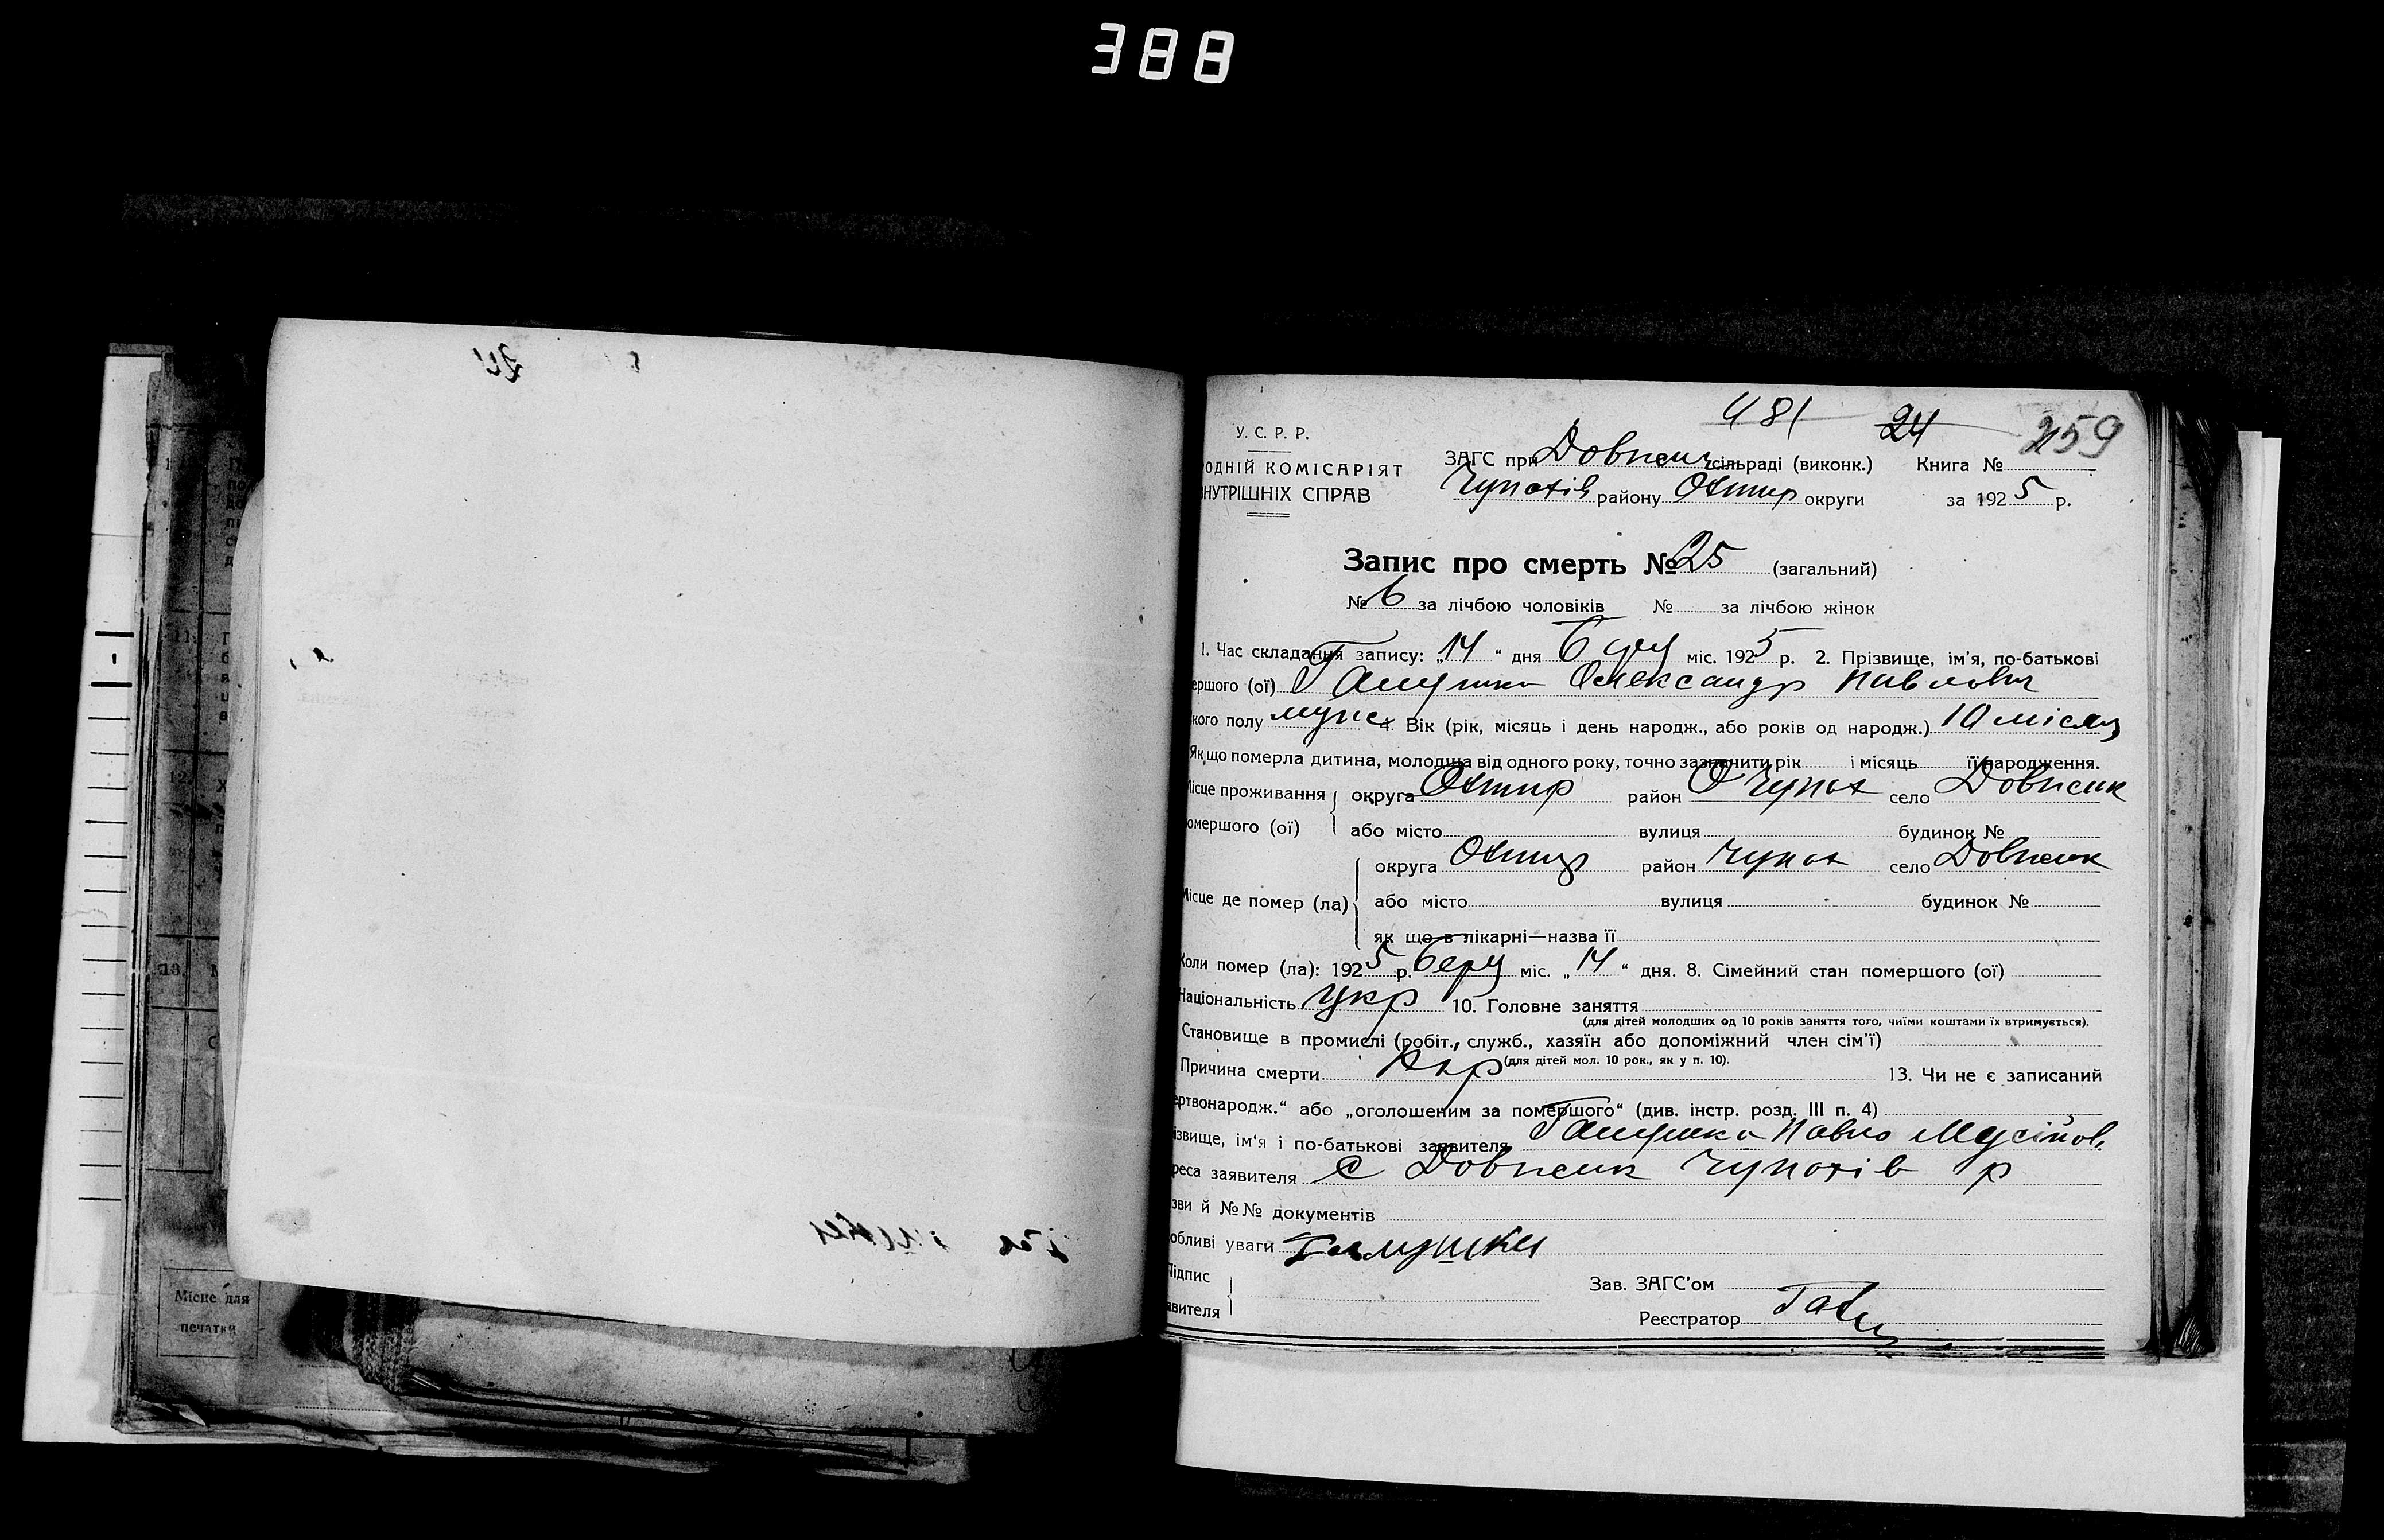 388
481 24 259
У. С. Р. Р.
ОДНІЙ КОМІСАРІЯТ
НУТРІШНІХ СПРАВ
ЗАГС при Довжик сільраді (виконк.) Книга №
Чупахів району Охтир округи за 1925 р.
Запис про смерть № 25 (загальний)
№ 6 за лічбою чоловіків № за лічбою жінок
1. Час складання запису: „14“ дня міс. 1925 р. 2. Прізвище, ім'я, по-батькові
ершого (ої) Галушка Олександр Павлович
кого полу мужс 4. Вік (рік, місяць і день народж., або років од народж.) 10 місяц
Як що померла дитина, молодша від одного року, точно зазначити рік і місяць її народження.
ісце проживання округа Охтир район Чупах село Довжик
омершого (ої) або місто вулиця будинок №
округа Охтир район Чупах село Довжик
Місце де помер (ла) або місто вулиця будинок №
як що в лікарні—назва її
Коли помер (ла): 1925 р. берц міс. „14“ дня. 8. Сімейний стан помершого (ої)
Національність Укр 10. Головне заняття
(для дітей молодших од 10 років заняття того, чиїми коштами їх втримується).
Становище в промислі (робіт., служб., хазяїн або допоміжний член сім'ї)
(для дітей мол. 10 рок., як у п. 10).
Причина смерти 13. Чи не є записаний
ертвонародж.“ або „оголошеним за помершого“ (див. інстр. розд. III п. 4)
ізвище, ім'я і по-батькові заявителя Галушка Павло Мусійов.
реса заявителя с Довжик Чупахів р
зви й №№ документів
обливі уваги Галушка
Підпис
явителя
Зав. ЗАГС'ом
Реєстратор
Місце для
печатки